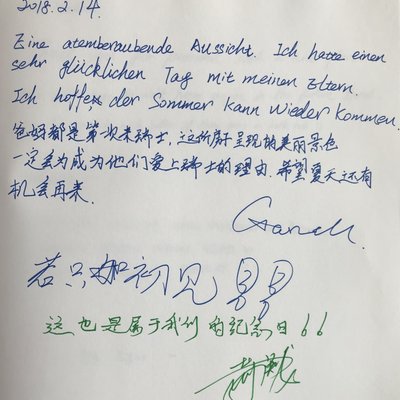 2018.2.14.
Eine atemberaubende Aussicht. Ich hatte einen
sehr glücklichen Tag mit meinen Eltern.
Ich hoffe, der Sommer kann wieder kommen.
爸妈都是第一次来瑞士,这所房子呈现的美丽景色
一定会成为他们爱上瑞士的理由.希望夏天还有
机会再来.
若只如初见
这也是属于我们的纪念日66